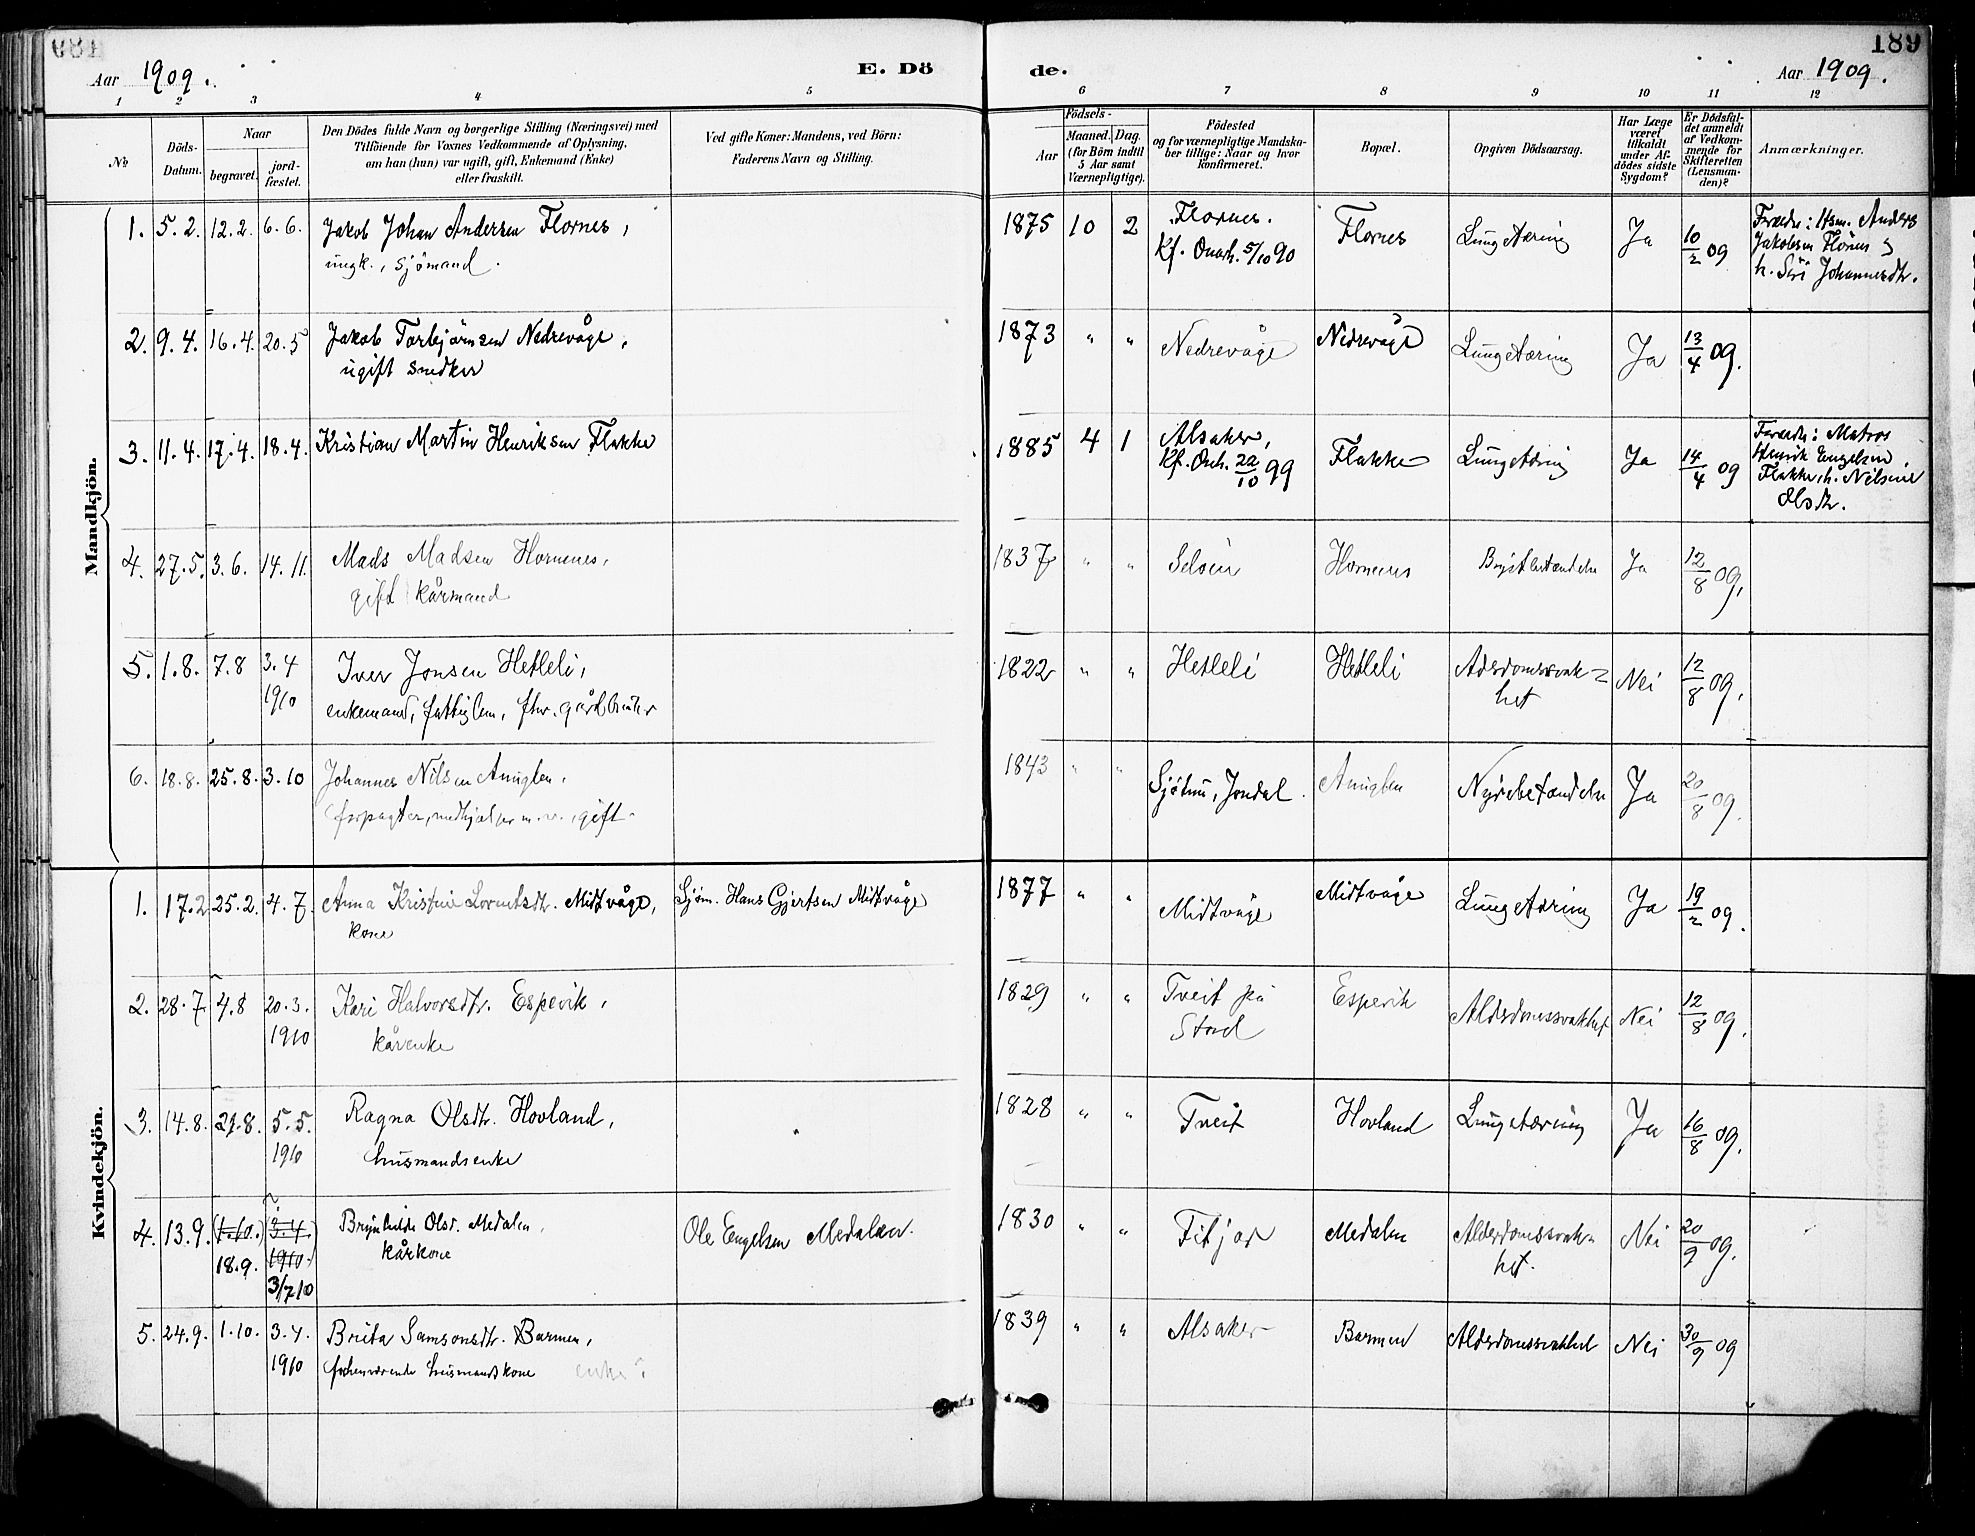 189
Aar 1909.
E. Dö
de.
Aar 1909.
1 2 3 4 5 6 7 8 9 10 11 12
No
Döds-Datum.
Naar
begravet.
jord-fæstet.
Den Dödes fulde Navn og borgerlige Stilling (Næringsvei) med
Tilföiende for Voxnes Vedkommende af Oplysning,
om han (hun) var ugift, gift, Enkemand (Enke)
eller fraskilt.
Ved gifte Koner: Mandens, ved Börn:
Faderens Navn og Stilling.
Födsels-
Aar
Maaned.
Dag.
(for Börn indtil
5 Aar samt
Værnepligtige).
Födested
og for værnepligtige Mandska-
ber tillige: Naar og hvor
konfirmeret.
Bopæl.
Opgiven Dödsaarsag.
Har Læge
været
tilkaldt
under Af-
dödes sidste
Sygdom?
Er Dödsfal-
det anmeldt
af Vedkom-
mende for
Skifteretten
(Lensman-
den)?
Anmærkninger.
Mandkjön.
1. 5.2. 12.2. 6.6. Jakob Johan Andersen Flornes, 1875 10 2 Flornes. Flornes Lungetæring Ja 10/2 09 Foræld.: Hsm. Anders
ungk., sjømand. Kf. Onarh. 5/10 90 Jakobsen Flornes &
h. Siri Johannesdtr.
2. 9.4. 16.4. 20.5 Jakob Torbjørnsen Nedrevåge, 1873 " " Nedrevåge Nedrevåge Lungetæring Ja 13/4 09.
ugift snedker
3. 11.4. 17.4. 18.4. Kristian Martin Henriksen Flakke 1885 4 1 Alsaker, Flakke Lungetæring Ja 14/4 09 Foræld.: Matros
Kf. Onh. 22/10 99 Henrik Engelsen
Flakke, h. Nilsine
Olsdtr.
4. 27.5. 3.6. 14.11. Mads Madsen Hornenes, 1837 " " Seløen Hornenes Brystbetændelse Ja 12/8 09.
gift kårmand
5. 1.8. 7.8 3.4 Iver Jonsen Hetleli, 1822 " " Hetleli Hetleli Alderdomssvak- Nei 12/8 09.
1910 enkemand, fattiglem, fhv. gårdbruker het
6. 18.8. 25.8. 3.10 Johannes Nilsen Anuglen, 1843 " " Sjøtun, Jondal. Anuglen Nyrebetændelse Ja 20/8 09.
forpagter, medhjælper m.v., gift.
Kvindekjön.
1. 17.2 25.2. 4.7. Anna Kristine Lorentsdtr. Midtvåge, Sjøm. Hans Gjertsen Midtvåge 1877 " " Midtvåge Midtvåge Lungetæring Ja 19/2 09.
kone
2. 28.7 4.8 20.3. Kari Halvorsdtr. Espevik, 1829 " " Tveit på Espevik Alderdomssvakhet Nei 12/8 09.
1910 kårenke Stord
3. 14.8. 21.8. 5.5. Ragna Olsdtr. Hovland, 1828 " " Tveit Hovland Lungetæring Ja 16/8 09.
1910 husmandsenke
4. 13.9. (1.10.) (3.4 Brynhilde Olsd. Medalen, Ole Engelsen Medalen. 1830 " Fitjar Medalen Alderdomssvak- Nei 20/9 09.
18.9. 1910.) kårkone het.
3/7 10
5. 24.9. 1.10. 3.4. Brita Samsonsdtr. Barmen, 1839 " " Alsaker Barmen Alderdomssvakhet Nei 30/9 09
1910 forhenværende husmandskone enke?